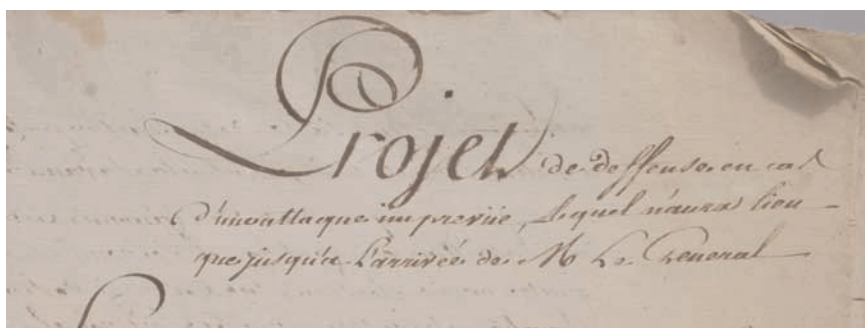 Projet de deffense en cas
d'une attaque imprevüe, Lequel n'aura lieu
que jusqu'a L'arrivée de M Le General